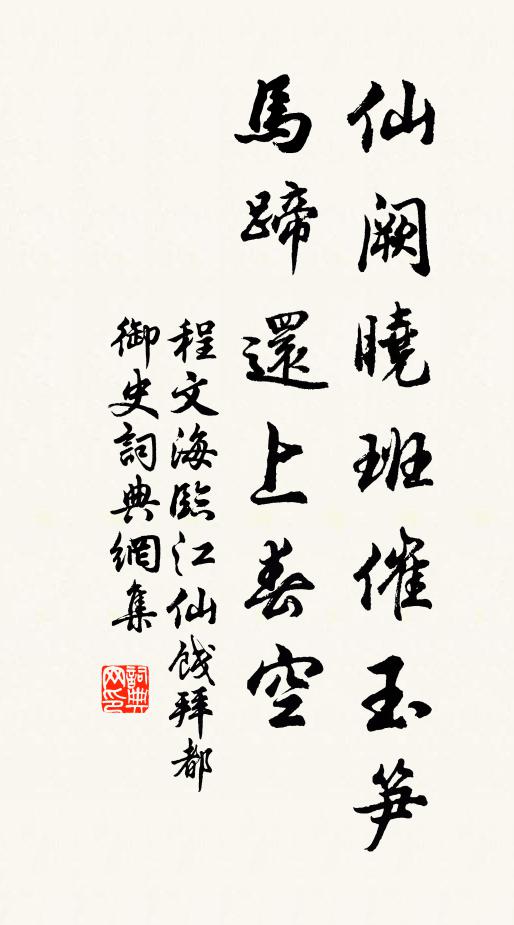 仙阙曉班催玉笋
馬蹄還上春空
程文海臨江仙餞拜都
御史詞典網集
詞典
网印